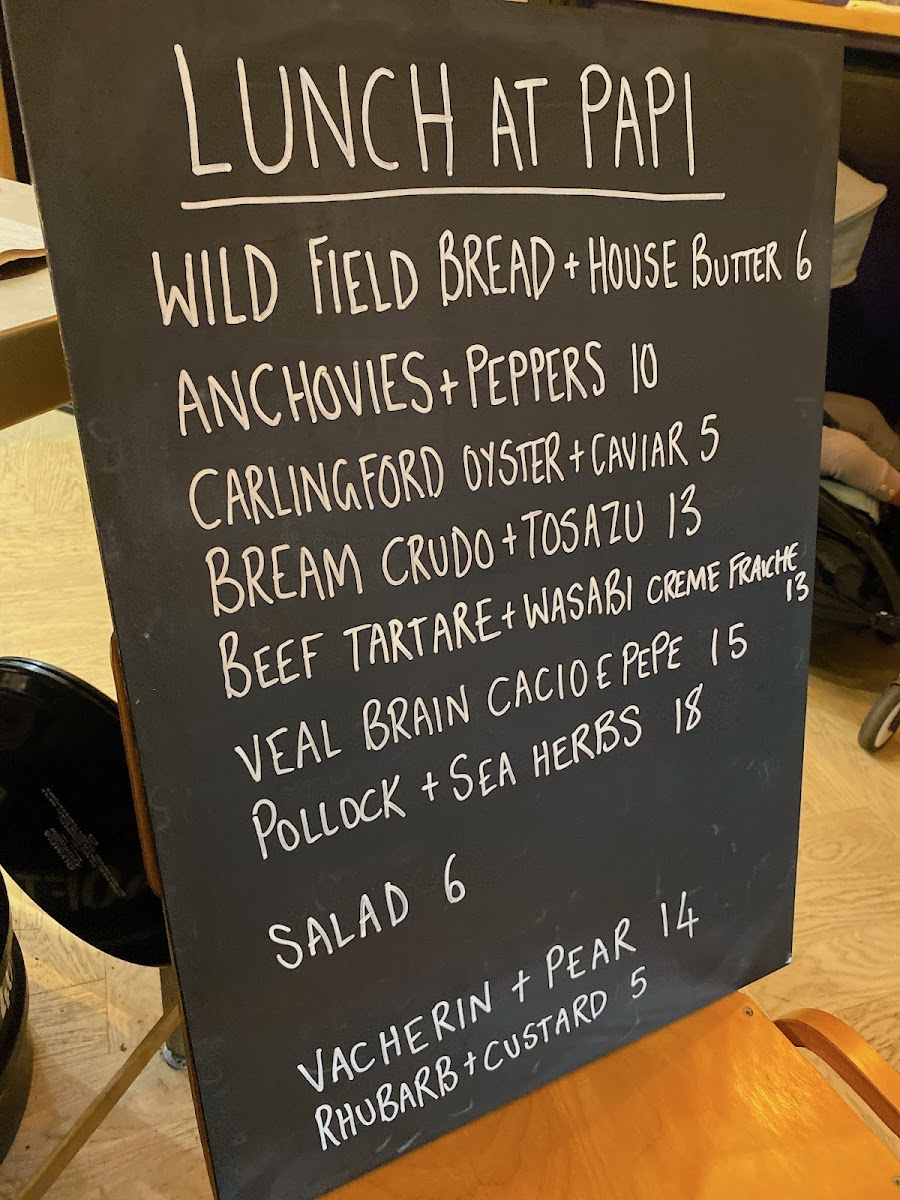 LUNCH AT PAPI
WILD FIELD BREAD + HOUSE BUTTER 6
ANCHOVIES + PEPPERS 10
CARLINGFORD OYSTER + CAVIAR 5
BREAM CRUDO + TOSAZU 13
BEEF TARTARE + WASABI CREME FRAICHE
13
VEAL BRAIN CACIO E PEPE 15
POLLOCK + SEA HERBS 18
SALAD 6
VACHERIN + PEAR 14
RHUBARB + CUSTARD 5